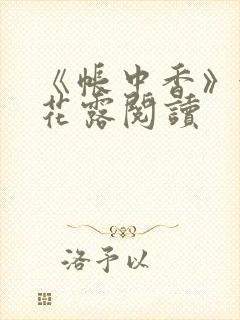 《帳中香》
花露閱讀
洛予以